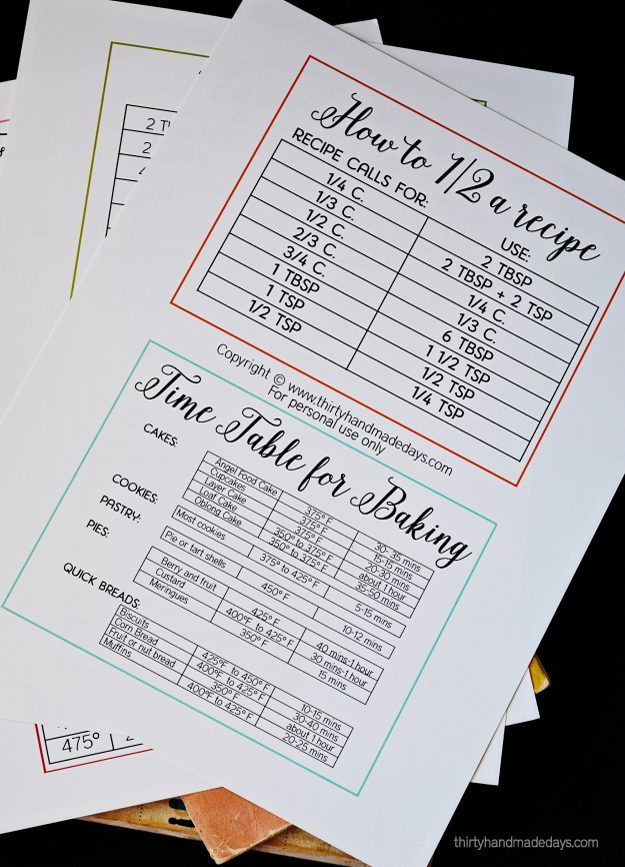 How to 1/2 a recipe
RECIPE CALLS FOR: USE:
1/4 C. 2 TBSP
1/3 C. 2 TBSP + 2 TSP
1/2 C. 1/4 C.
2/3 C. 1/3 C.
3/4 C. 6 TBSP
1 TBSP 1 1/2 TSP
1 TSP 1/2 TSP
1/2 TSP 1/4 TSP
Copyright © www.thirtyhandmadedays.com
For personal use only
Time Table for Baking
CAKES:
Angel Food Cake 375° F 30-35 mins
Cupcakes 375° F 15-15 mins
Layer Cake 350° to 375° F 20-30 mins
Loaf Cake 350° F about 1 hour
Oblong Cake 350° to 375° F 35-50 mins
COOKIES: Most cookies 375° to 425° F 5-15 mins
PASTRY: Pie or tart shells 450° F 10-12 mins
PIES: Berry and fruit 425° F 40 mins-1 hour
Custard 400°F to 425° F 30 mins-1 hour
Meringues 350° F 15 mins
QUICK BREADS:
Biscuits 425°F to 450° F 10-15 mins
Corn Bread 400°F to 425° F 30-40 mins
Fruit or nut bread 350° F about 1 hour
Muffins 400°F to 425° F 20-25 mins
475°
thirtyhandmadedays.com